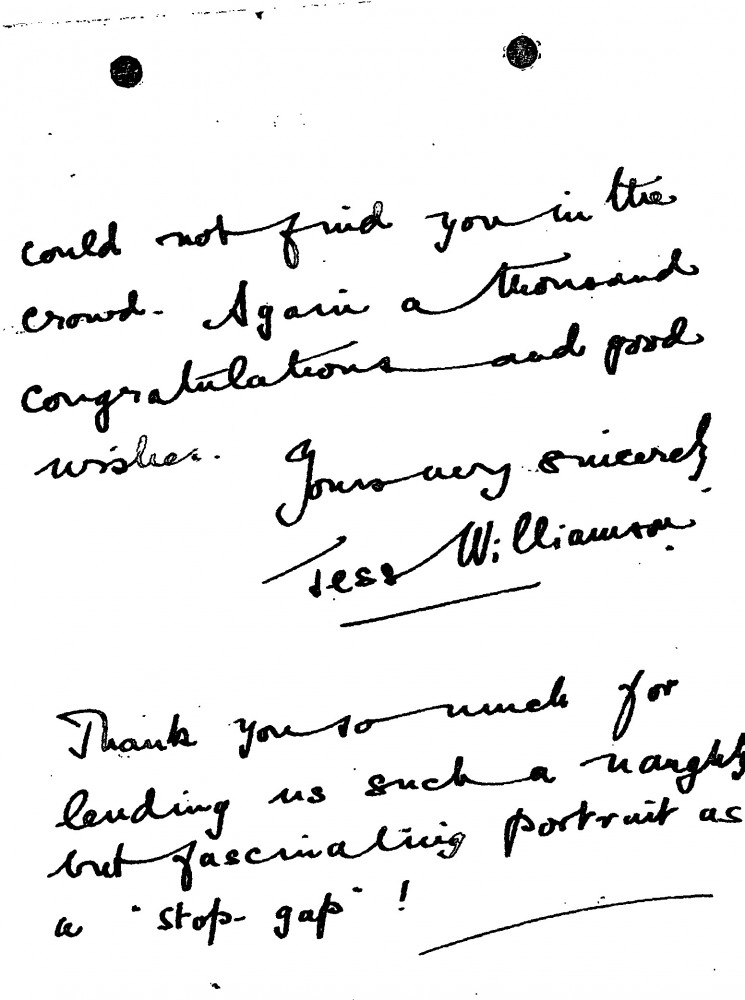 could not find you in the
crowd. Again a thousand
congratulations and good
wishes.
Yours very sincerely
Tess Williamson.
Thank you so much for
lending us such a naughty
but fascinating portrait as
a "stop-gap"!